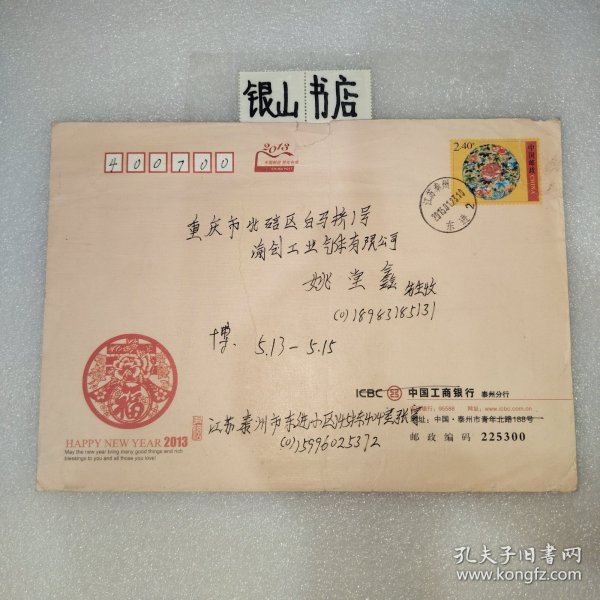 银山 书店
400700
2013
2.40元
中国邮政 CHINA
江苏泰州
东进 2
重庆市北碚区白马桥1号
海创工业气体有限公司
姚堂鑫 先生收
(0)18983185131
5.13-5.15
ICBC 中国工商银行 泰州分行
95588 网址:www.icbc.com.cn
地址:中国·泰州市青年北路188号
江苏泰州市东进小区
(0)15996025372
邮政编码 225300
福
HAPPY NEW YEAR 2013
May the new year bring many good things and rich
blessings to you and all those you love!
孔夫子旧书网
www.kongfz.com